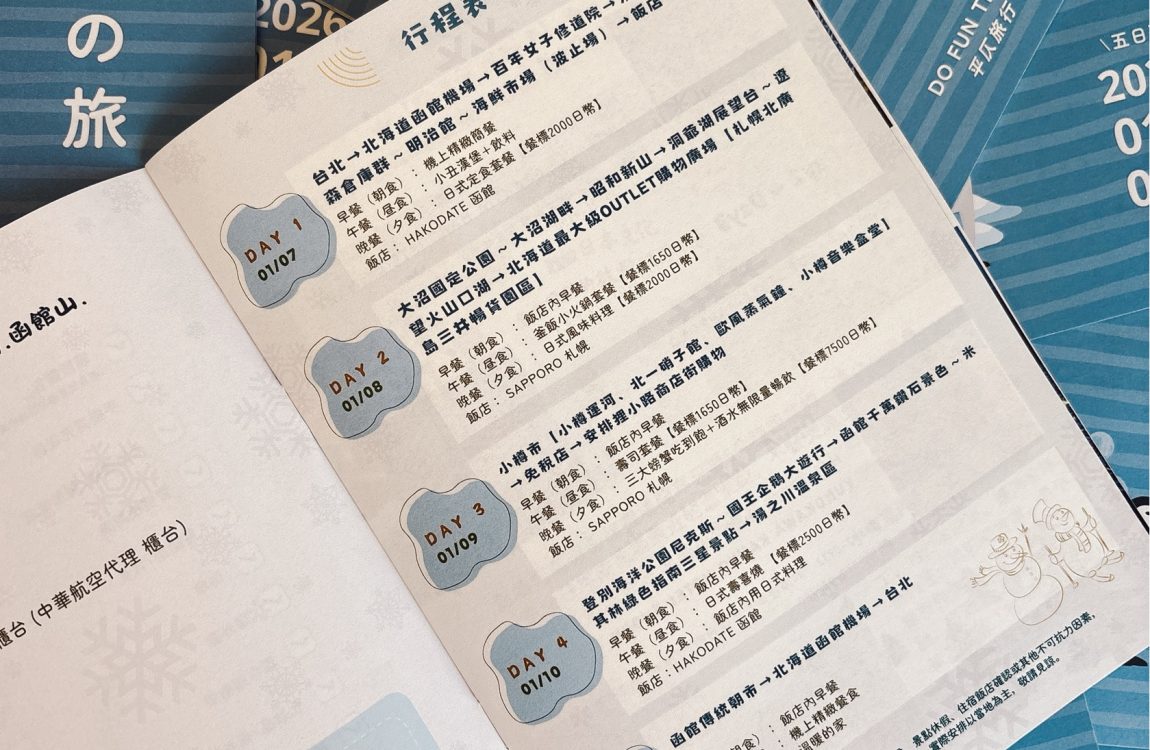 の
旅
2026
.函館山.
櫃台 (中華航空代理 櫃台)
行程表
DAY 1
01/07
台北→北海道函館機場→百年女子修道院→
森倉庫群~明治館~海鮮市場（波止場）→飯店
早餐（朝食）：機上精緻簡餐
午餐（昼食）：小丑漢堡＋飲料
晚餐（夕食）：日式定食套餐【餐標2000日幣】
飯店：HAKODATE 函館
DAY 2
01/08
大沼國定公園~大沼湖畔→昭和新山→洞爺湖展望台~遼
望火山口湖→北海道最大級OUTLET購物廣場【札幌北廣
島三井暢貨園區】
早餐（朝食）：飯店內早餐
午餐（昼食）：釜飯小火鍋套餐【餐標1650日幣】
晚餐（夕食）：日式風味料理【餐標2000日幣】
飯店：SAPPORO 札幌
DAY 3
01/09
小樽市【小樽運河、北一硝子館、歐風蒸氣鐘、小樽音樂盒堂】
→免稅店→安排狸小路商店街購物
早餐（朝食）：飯店內早餐
午餐（昼食）：壽司套餐【餐標1650日幣】
晚餐（夕食）：三大螃蟹吃到飽＋酒水無限量暢飲【餐標7500日幣】
飯店：SAPPORO 札幌
DAY 4
01/10
登別海洋公園尼克斯~國王企鵝大遊行→函館千萬鑽石景色~米
其林綠色指南三星景點→湯之川溫泉區
早餐（朝食）：飯店內早餐
午餐（昼食）：日式壽喜燒【餐標2500日幣】
晚餐（夕食）：飯店內用日式料理
飯店：HAKODATE 函館
函館傳統朝市→北海道函館機場→台北
飯店內早餐
機上精緻餐食
溫暖的家
景點休假、住宿飯店確認或其他不可抗力因素，
實際安排以當地為主，敬請見諒。
DO FUN
平仄旅行
\五日